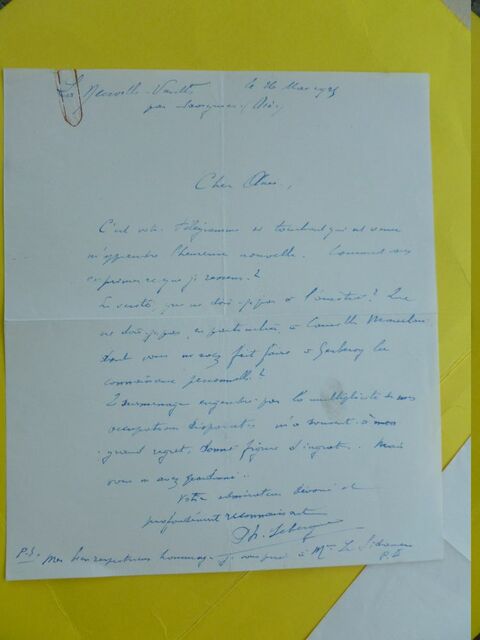 Neuville-Vault le 26 Mars
par
Cher
C'est votre télégramme si touchant qui est venu
m'apprendre l'heureuse nouvelle. Comment vous
exprimer ce que je ressens?
En vérité, que ne dois-je pas à l'amitié? Que
ne dois-je pas, en particulier, à Camille Mauclair
dont vous m'avez fait faire à Gerberoy la
connaissance personnelle?
Le surmenage engendré par la multiplicité de mes
occupations disparates m'a souvent à mon
grand regret, donné figure d'ingrat. Mais
vous m'avez pardonné..
Votre admirateur dévoué et
profondément reconnaissant
Ph.
P.S. Mes bien respectueux hommages je vous prie à Mme Le Sidaner